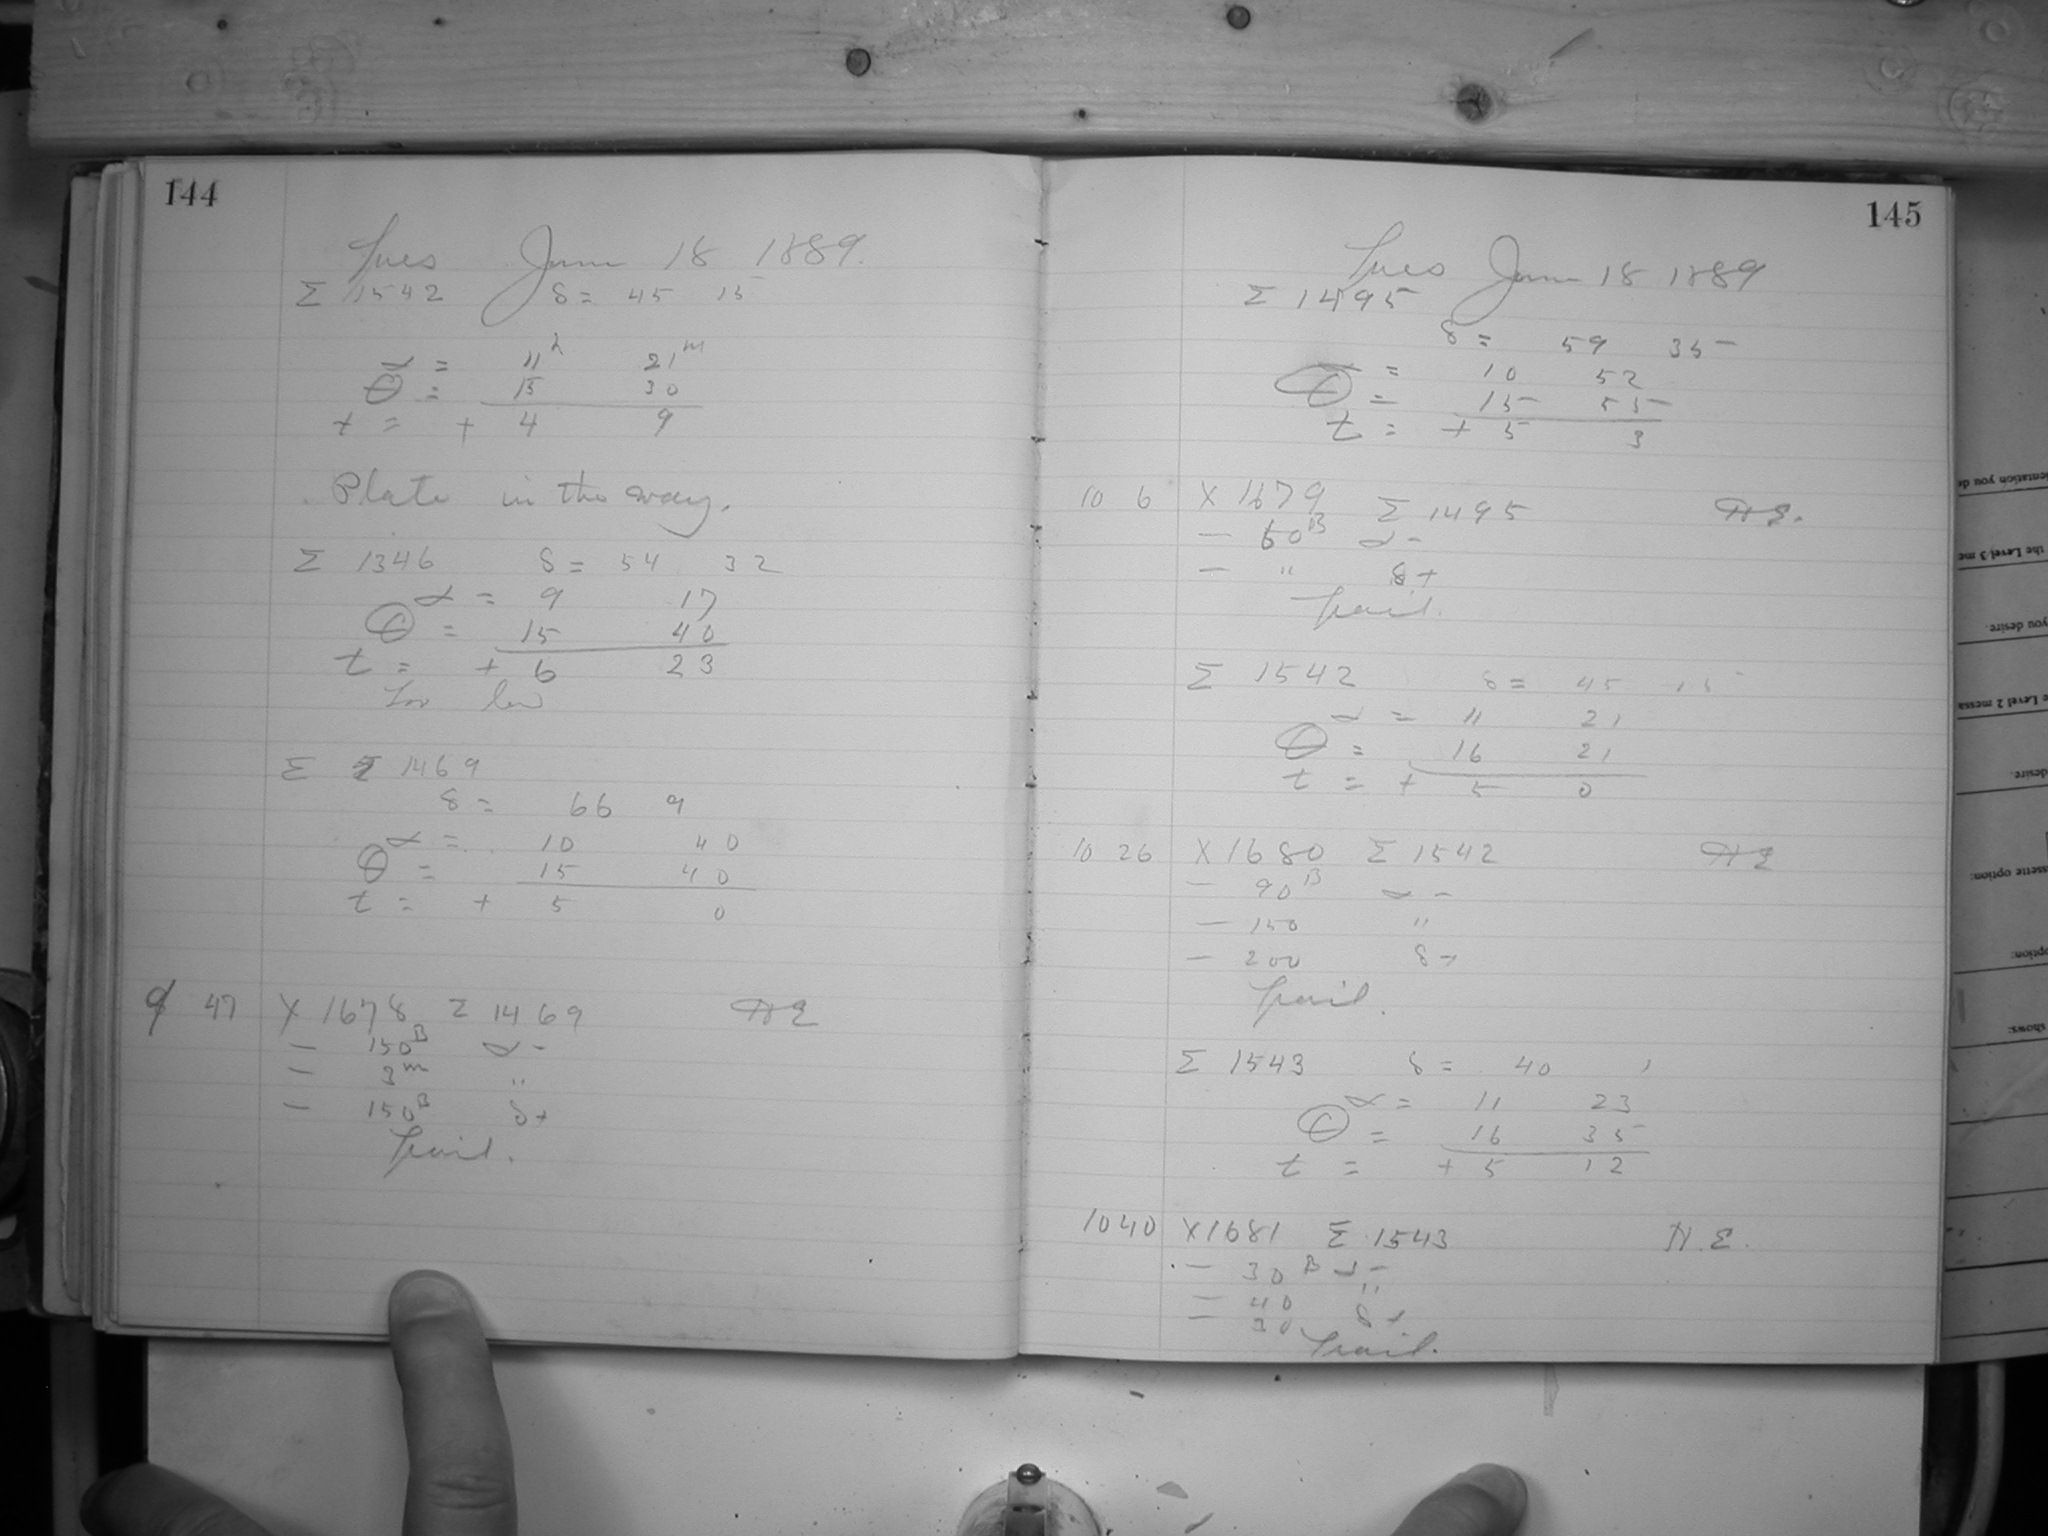 144
Tues June 18 1889.
Σ 1542 δ = 45 15
α = 11h 21m
θ = 15 30
t = + 4 9
Plate in the way.
Σ 1346 δ = 54 32
α = 9 17
θ = 15 40
t = + 6 23
Too low
Σ 1469
δ = 66 9
α = 10 40
θ = 15 40
t = + 5 0
9 47 X 1678 Σ 1469
— 150B α -
— 3m "
— 150B δ +
Trail.
145
Tues June 18 1889
Σ 1495
δ = 59 35
α = 10 52
θ = 15 55
t = + 5 3
10 6 X 1679 Σ 1495 H E.
— 60B α -
— " δ +
Trail.
Σ 1542 δ = 45 15
α = 11 21
θ = 16 21
t = + 5 0
10 26 X 1680 Σ 1542 H E
— 90B α -
— 150 "
— 200 δ +
Trail.
Σ 1543 δ = 40 1
α = 11 23
θ = 16 35
t = + 5 12
10 40 X 1681 Σ 1543 H. E.
— 30B α -
— 40 "
— 30 δ +
Trail.